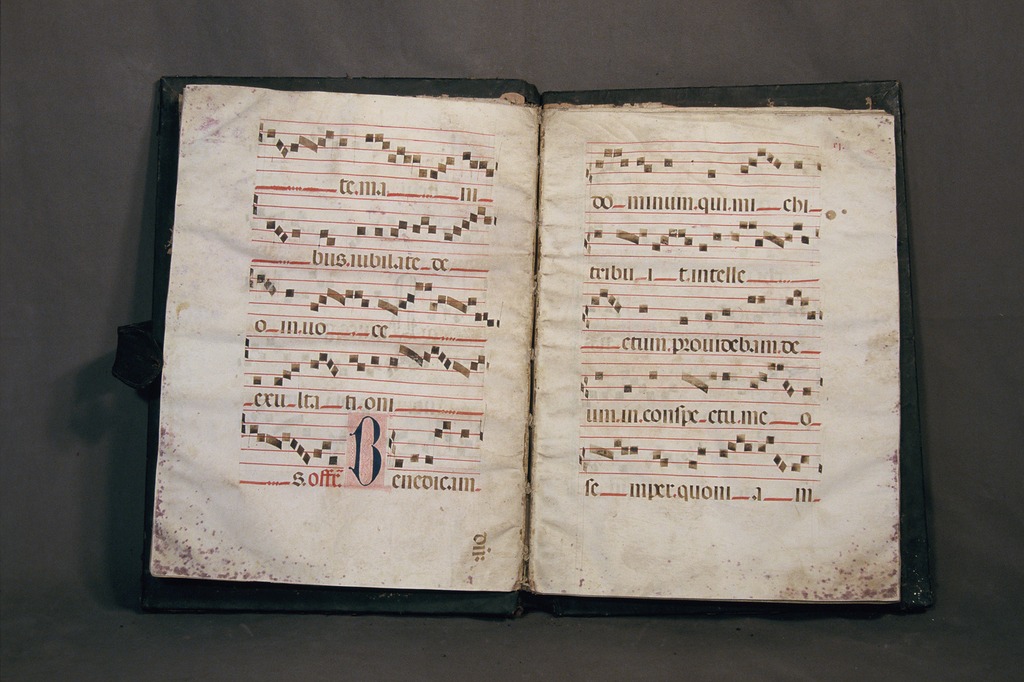 te.ma ni
bus.iubilate de
o in.uo ce
exu lta ti oni
s.offr. Benedicam
do minum.qui.mi chi
tribu i t.intelle
ctum.prouidebam.de
um.in.conspe ctu.me o
se mper.quoni a m